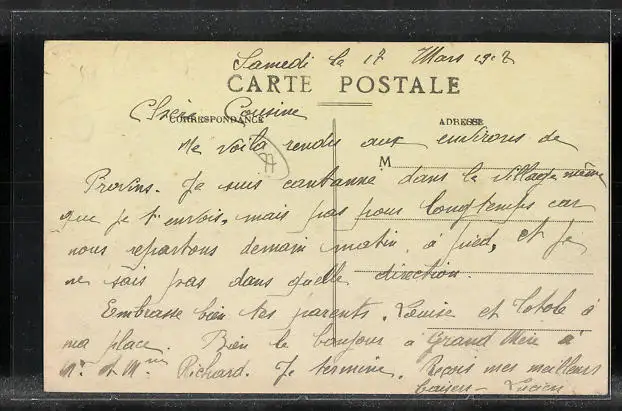 Samedi le 17 Mars 1917
CARTE POSTALE
Chère Cousine
CORRESPONDANCE
ADRESSE
Me voila rendu aux environs de
M
Provins. Je suis cantonné dans le village même
que je t'envois, mais pas pour longtemps car
nous repartons demain matin, à pied, et je
ne sais pas dans quelle direction.
Embrasse bien tes parents. Louise et Totole à
ma place. Bien le bonjour à Grand Mère à
Mr et Mme Richard. Je termine. Reçois mes meilleurs
baisers - Lucien